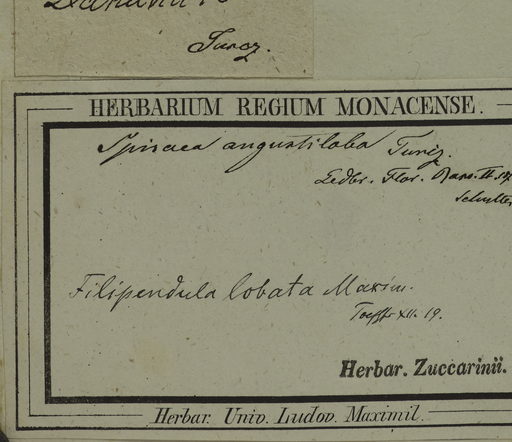 Turcz.
HERBARIUM REGIUM MONACENSE.
Spiraea angustiloba Turcz.
Ledbr. Flor. Ross. II.
Filipendula lobata Maxim.
XII. 19.
Herbar. Zuccarinii.
Herbar. Univ. Ludov. Maximil.